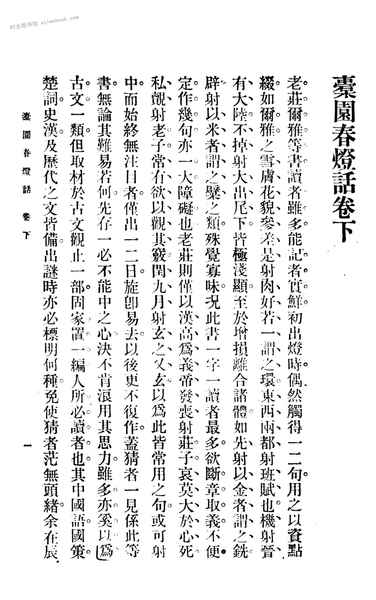 橐園春燈話卷下
老莊爾雅等書讀者雖多能記者實鮮初出燈時偶然觸得一二句用之以資點
綴如爾雅之雪膚花貌參差是射肉好若一謂之環東西兩都射班賦也機射晉
有大陸不掉射大出尾下皆極淺顯至於增損離合諸體如先射以金者謂之銑
辟射以米者謂之糪之類殊覺寡味況此書一字一讀者最多欲斷章取義不便
定作幾句亦一大障礙也老莊則僅以漢高爲義帝發喪射莊子哀莫大於心死
私覿射老子常有欲以觀其竅閏九月射玄之又玄以爲此皆常用之句或可射
中而始終無注目者僅出一二日旋卽易去以後更不復作蓋猜者一見係此等
書無論其難易若何先存一必不能中之心決不肯浪用其思力雖多亦奚以爲
古文一類但取材於古文觀止一部固家置一編人所必讀者也其中國語國策
楚詞史漢及歷代之文皆備出謎時亦必標明何種免使猜者茫無頭緒余在辰
橐園春燈話 卷下
一